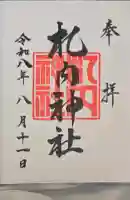 奉拝
札内神社
令和八年八月十一日